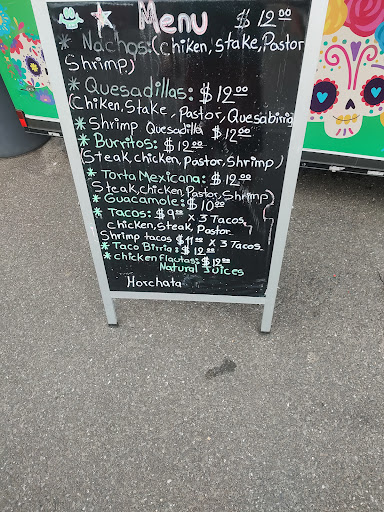 Menu $ 12.00
* Nachos: (Chiken, Stake, Pastor
Shrimp)
* Quesadillas: $ 12.00
(Chiken, Stake, Pastor, Quesabiria
* Shrimp Quesadilla $ 12.00
* Burritos: $ 12.00
(Steak, chicken, Pastor, Shrimp)
* Torta Mexicana: $ 12.00
Steak, chicken, Pastor, Shrimp)
* Guacamole: $ 10.00
* Tacos: $ 9.00 x 3 Tacos
chicken, Steak, Pastor
Shrimp tacos $ 11.00 x 3 Tacos
* Taco Birria: $ 12.00
* chicken flautas: $ 12.00
Natural Juices
Horchata